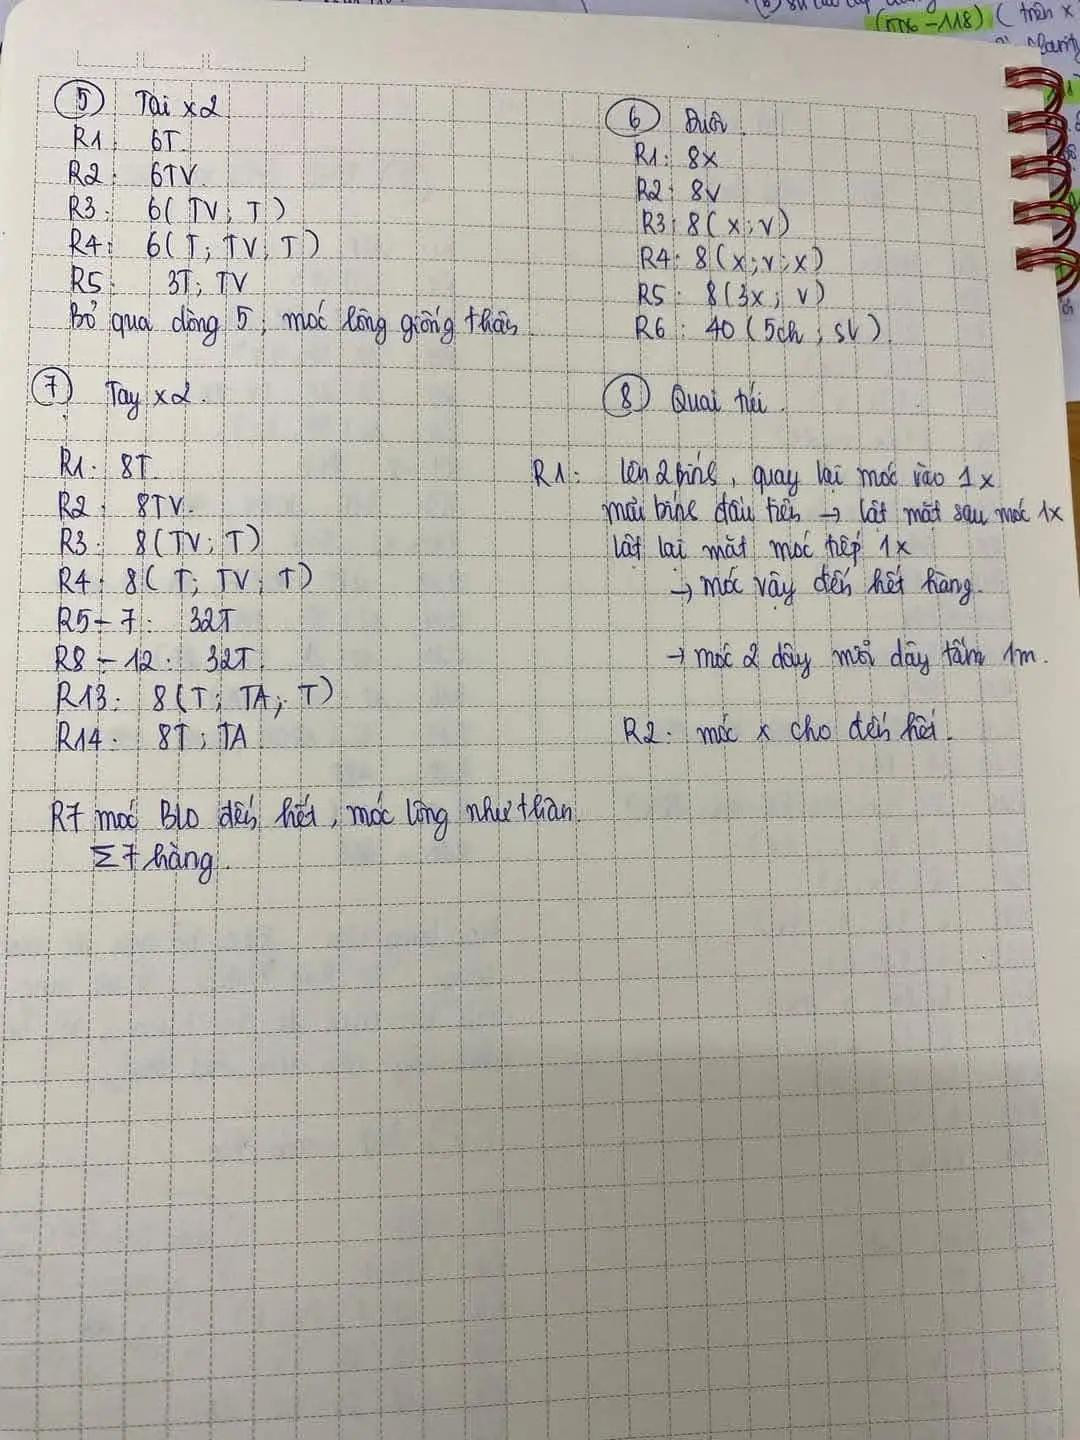 (116-118) ( trên x
⑤ Tai x2
R1: 6T
R2: 6TV
R3: 6( TV; T)
R4: 6( T; TV; T)
R5: 3T; TV
Bỏ qua dòng 5, móc lông giống thân
⑥ Đuôi
R1: 8x
R2: 8v
R3: 8( x; v)
R4: 8(x; v; x)
R5: 8(3x; v)
R6: 40 (5ch; sl)
⑦ Tay x2
R1: 8T
R2: 8TV
R3: 8(TV; T)
R4: 8( T; TV; T)
R5-7: 32T
R8-12: 32T
R13: 8(T; TA; T)
R14: 8T; TA
R7 móc BLO đến hết, móc lông như thân
Σ7 hàng
⑧ Quai túi
R1: lên 2 bính, quay lại móc vào 1x
mũi bính đầu tiên → lật mặt sau móc 1x
lật lại mặt móc tiếp 1x
→ móc vậy đến hết hàng.
→ móc 2 dây mỗi dây tầm 1m.
R2: móc x cho đến hết.